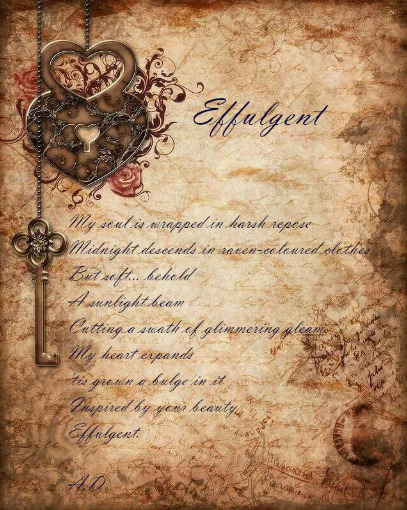 Effulgent
My soul is wrapped in harsh repose
Midnight descends in raven-coloured clothes
But soft... behold
A sunlight beam
Cutting a swath of glimmering gleam
My heart expands
'tis grown a bulge in it
Inspired by your beauty
Effulgent.
A.O.